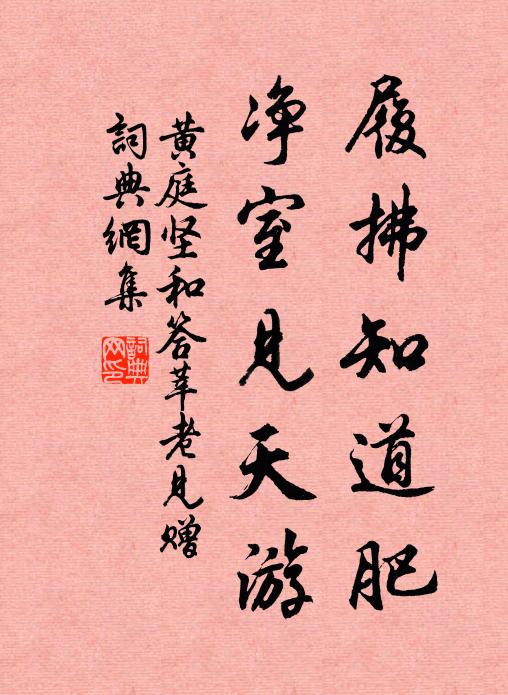 履拂知道肥
净室见天游
黄庭坚和答莘老见赠
詞典網集
詞典网印